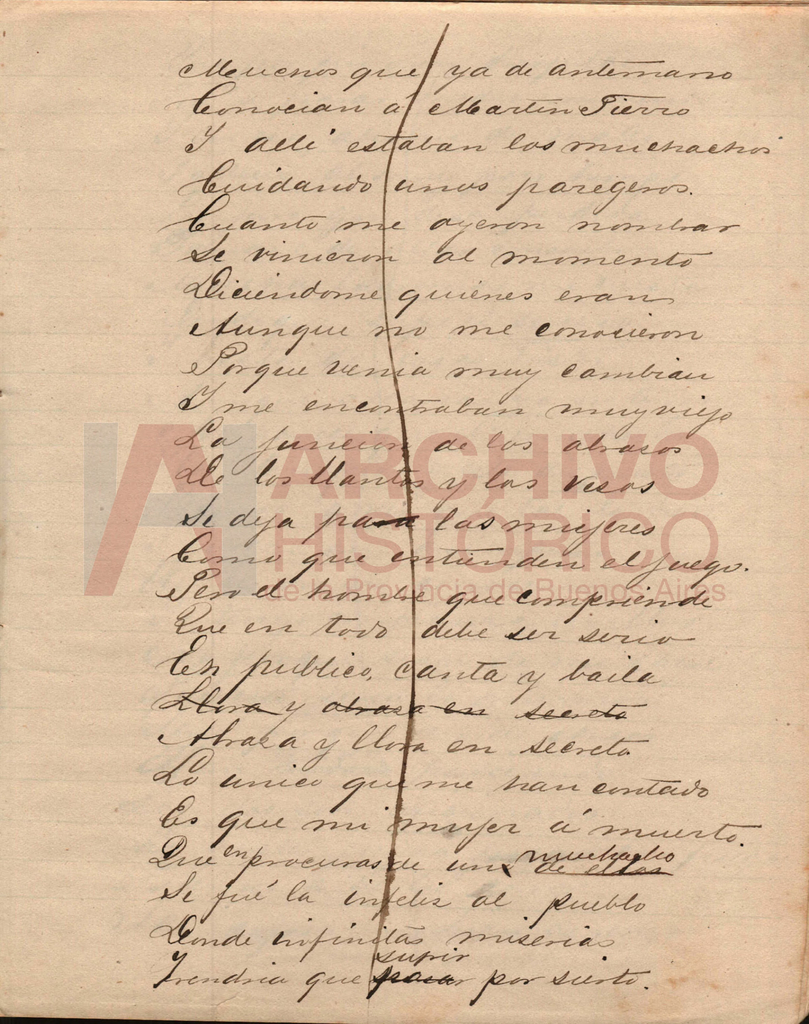 Muchos que ya de antemano
Conocian a Martin Fierro
Y allí estaban los muchachos
Cuidando unos paregeros.
Cuanto me oyeron nombrar
Se vinieron al momento
Diciendome quienes eran
Aunque no me conocieron
Porque venia muy cambiau
Y me encontraban muy viejo
La funcion de los abrasos
De los llantos y los vesos
Se deja para las mujeres
Como que entienden el juego.
Pero el hombre que comprende
Que en todo debe ser serio
En publico, canta y baila
Llora y abraza en secreto
Abraza y llora en secreto
Lo unico que me han contado
Es que mi mujer á muerto.
Que en procuras de un muchacho de ellos
Se fué la infeliz al pueblo
Donde infinitas miserias
Tendria que sufrir pasar por sierto.
ARCHIVO
HISTÓRICO
de la Provincia de Buenos Aires